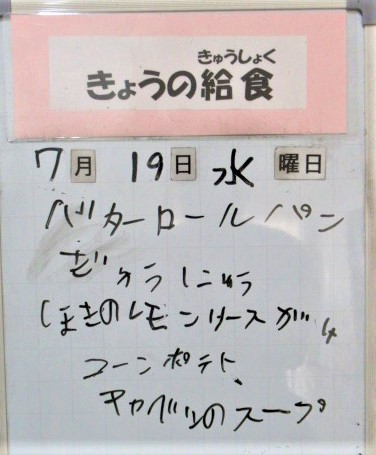 きゅうしょく
きょうの給食
7月 19日 水 曜日
バターロールパン
ぎゅうにゅう
ほきのレモンソースがけ
コーンポテト
キャベツのスープ